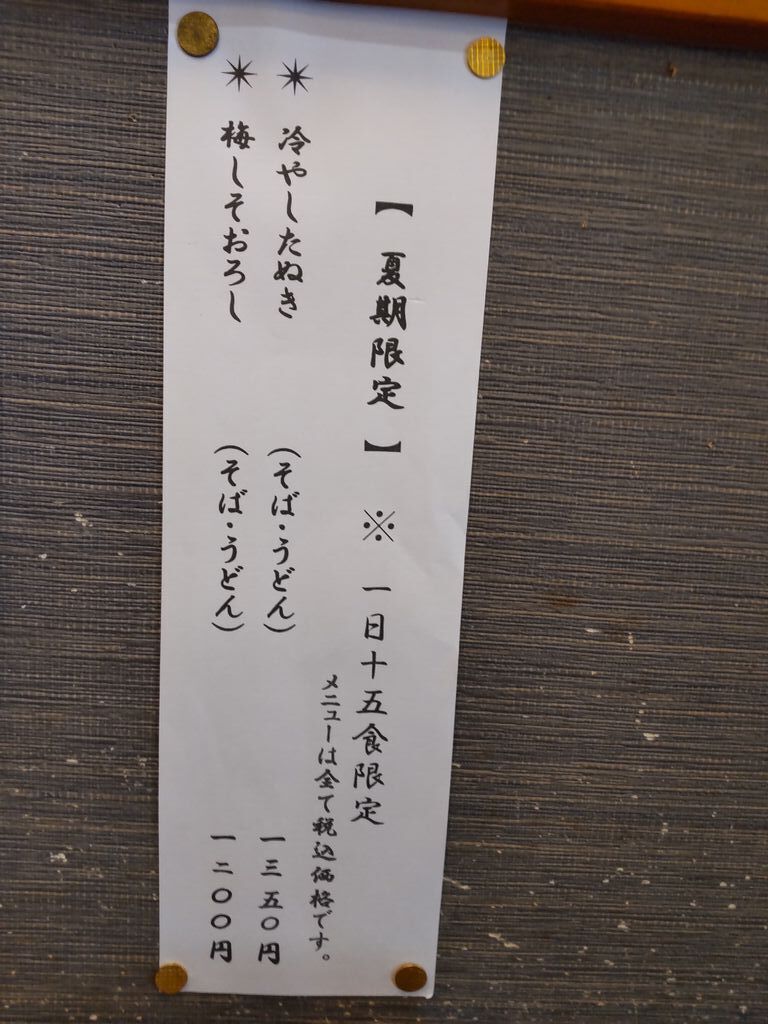 【夏期限定】※一日十五食限定
メニューは全て税込価格です。
✴冷やしたぬき（そば・うどん）一三五〇円
✴梅しそおろし（そば・うどん）一二〇〇円